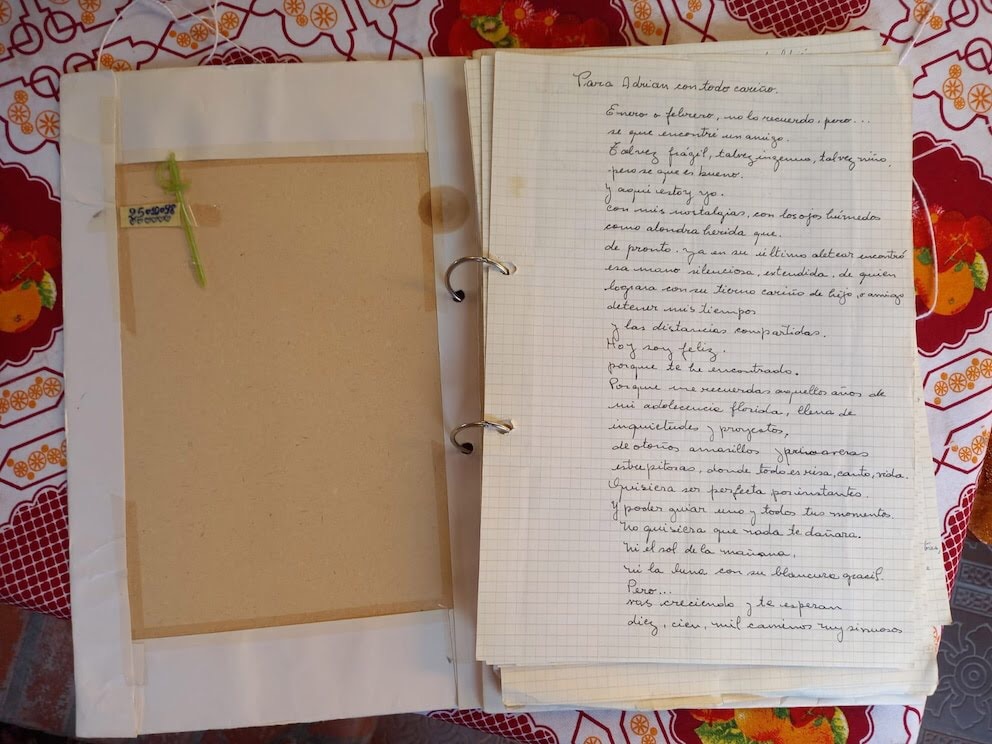 Para Adrian con todo cariño.
Enero o febrero, no lo recuerdo, pero...
se que encontré un amigo.
Talvez frágil, talvez ingenuo, talvez niño.
pero se que es bueno.
Y aqui estoy yo.
con mis nostalgias, con los ojos húmedos
como alondra herida que.
de pronto. ya en su último aletear encontró
esa mano silenciosa, extendida. de quien
lograra con su tierno cariño de hijo, o amigo
detener mis tiempos
y las distancias compartidas.
Hoy soy feliz.
porque te he encontrado.
Porque me recuerdas aquellos años de
mi adolecencia florida, llena de
inquietudes y proyectos,
de otoños amarillos y primaveras
estrepitosas, donde todo es risa, canto, vida.
Quisiera ser perfecta por instantes.
Y poder guiar uno y todos tus momentos.
No quisiera que nada te dañara.
ni el sol de la mañana,
ni la luna con su blancura gracil.
Pero...
vas creciendo y te esperan
diez, cien, mil caminos muy sinuosos